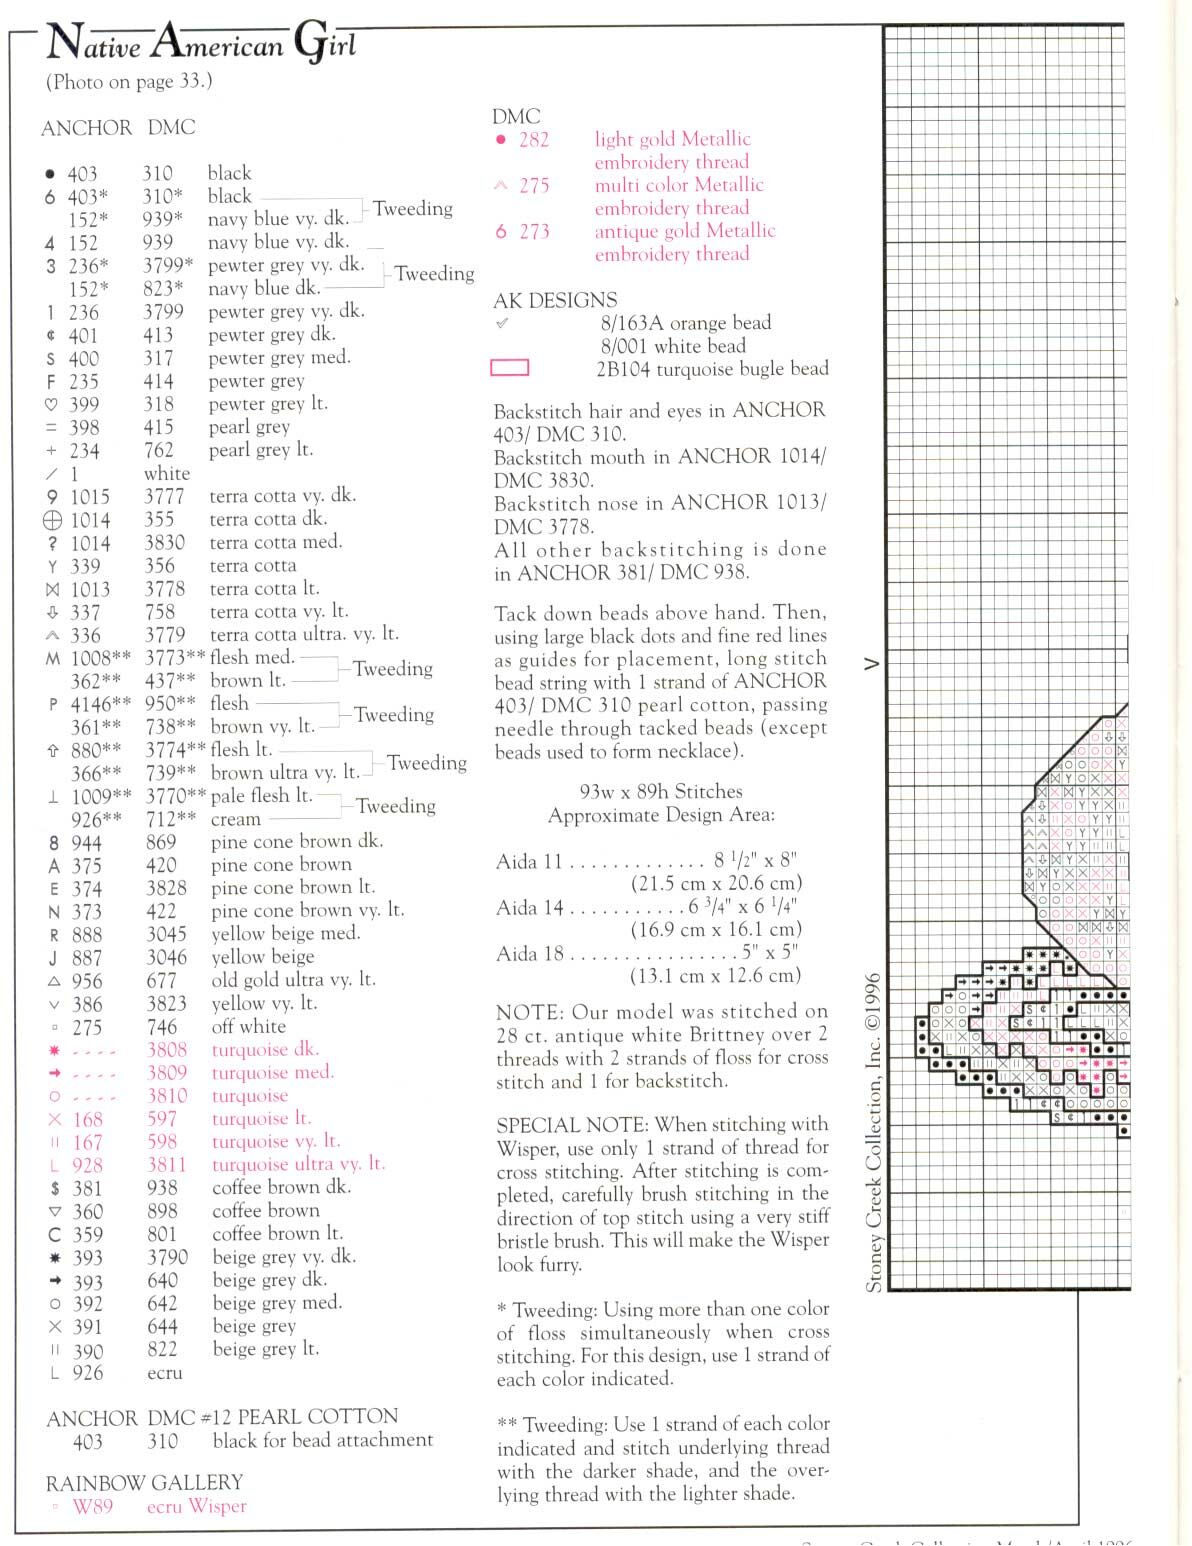 Native American Girl
(Photo on page 33.)
ANCHOR DMC
● 403 310 black
6 403* 310* black
152* 939* navy blue vy. dk.
Tweeding
4 152 939 navy blue vy. dk.
3 236* 3799* pewter grey vy. dk.
152* 823* navy blue dk.
Tweeding
1 236 3799 pewter grey vy. dk.
¢ 401 413 pewter grey dk.
S 400 317 pewter grey med.
F 235 414 pewter grey
♡ 399 318 pewter grey lt.
= 398 415 pearl grey
+ 234 762 pearl grey lt.
/ 1 white
9 1015 3777 terra cotta vy. dk.
⊕ 1014 355 terra cotta dk.
? 1014 3830 terra cotta med.
Y 339 356 terra cotta
⋈ 1013 3778 terra cotta lt.
⇩ 337 758 terra cotta vy. lt.
^ 336 3779 terra cotta ultra. vy. lt.
M 1008** 3773** flesh med.
362** 437** brown lt.
Tweeding
P 4146** 950** flesh
361** 738** brown vy. lt.
Tweeding
⇧ 880** 3774** flesh lt.
366** 739** brown ultra vy. lt.
Tweeding
⊥ 1009** 3770** pale flesh lt.
926** 712** cream
Tweeding
8 944 869 pine cone brown dk.
A 375 420 pine cone brown
E 374 3828 pine cone brown lt.
N 373 422 pine cone brown vy. lt.
R 888 3045 yellow beige med.
J 887 3046 yellow beige
△ 956 677 old gold ultra vy. lt.
v 386 3823 yellow vy. lt.
▫ 275 746 off white
✷ - - - - 3808 turquoise dk.
→ - - - - 3809 turquoise med.
○ - - - - 3810 turquoise
× 168 597 turquoise lt.
॥ 167 598 turquoise vy. lt.
L 928 3811 turquoise ultra vy. lt.
$ 381 938 coffee brown dk.
▽ 360 898 coffee brown
C 359 801 coffee brown lt.
✷ 393 3790 beige grey vy. dk.
→ 393 640 beige grey dk.
○ 392 642 beige grey med.
× 391 644 beige grey
॥ 390 822 beige grey lt.
L 926 ecru
ANCHOR DMC #12 PEARL COTTON
403 310 black for bead attachment
RAINBOW GALLERY
▫ W89 ecru Wisper
DMC
● 282 light gold Metallic
embroidery thread
^ 275 multi color Metallic
embroidery thread
6 273 antique gold Metallic
embroidery thread
AK DESIGNS
✓ 8/163A orange bead
8/001 white bead
2B104 turquoise bugle bead
Backstitch hair and eyes in ANCHOR
403/ DMC 310.
Backstitch mouth in ANCHOR 1014/
DMC 3830.
Backstitch nose in ANCHOR 1013/
DMC 3778.
All other backstitching is done
in ANCHOR 381/ DMC 938.
Tack down beads above hand. Then,
using large black dots and fine red lines
as guides for placement, long stitch
bead string with 1 strand of ANCHOR
403/ DMC 310 pearl cotton, passing
needle through tacked beads (except
beads used to form necklace).
93w x 89h Stitches
Approximate Design Area:
Aida 11 . . . . . . . . . . . . . 8 1/2" x 8"
(21.5 cm x 20.6 cm)
Aida 14 . . . . . . . . . . . 6 3/4" x 6 1/4"
(16.9 cm x 16.1 cm)
Aida 18 . . . . . . . . . . . . . . . . 5" x 5"
(13.1 cm x 12.6 cm)
NOTE: Our model was stitched on
28 ct. antique white Brittney over 2
threads with 2 strands of floss for cross
stitch and 1 for backstitch.
SPECIAL NOTE: When stitching with
Wisper, use only 1 strand of thread for
cross stitching. After stitching is com-
pleted, carefully brush stitching in the
direction of top stitch using a very stiff
bristle brush. This will make the Wisper
look furry.
* Tweeding: Using more than one color
of floss simultaneously when cross
stitching. For this design, use 1 strand of
each color indicated.
** Tweeding: Use 1 strand of each color
indicated and stitch underlying thread
with the darker shade, and the over-
lying thread with the lighter shade.
Stoney Creek Collection, Inc. ©1996